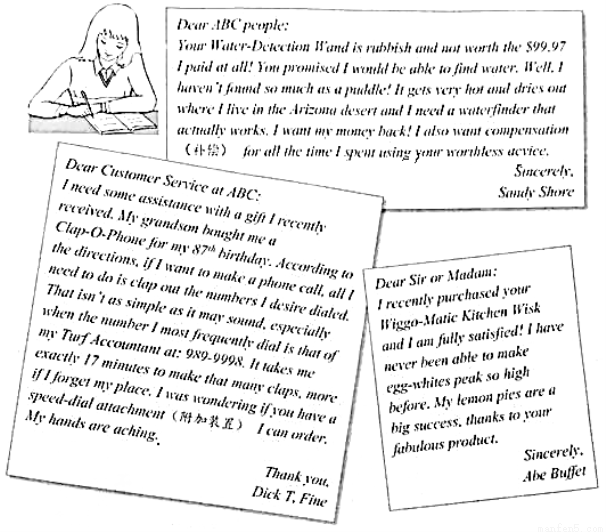 Dear ABC people:
Your Water-Detection Wand is rubbish and not worth the $99.97
I paid at all! You promised I would be able to find water. Well, I
haven't found so much as a puddle! It gets very hot and dries out
where I live in the Arizona desert and I need a waterfinder that
actually works. I want my money back! I also want compensation
（补偿） for all the time I spent using your worthless
Sincerely,
Sandy Shore
Dear Customer Service at ABC:
I need some assistance with a gift I recently
received. My grandson bought me a
Clap-O-Phone for my 87th birthday. According to
the directions, if I want to make a phone call, all I
need to do is clap out the numbers I desire dialed.
That isn't as simple as it may sound, especially
when the number I most frequently dial is that of
my Turf Accountant at: 989-9998. It takes me
exactly 17 minutes to make that many claps, more
if I forget my place. I was wondering if you have a
speed-dial attachment（附加装置） I can order.
My hands are aching.
Thank you,
Dick T, Fine
Dear Sir or Madam:
I recently purchased your
Wiggo-Matic Kitchen Wisk
and I am fully satisfied! I have
never been able to make
egg-whites peak so high
before. My lemon pies are a
big success, thanks to your
fabulous product.
Sincerely,
Abe Buffet